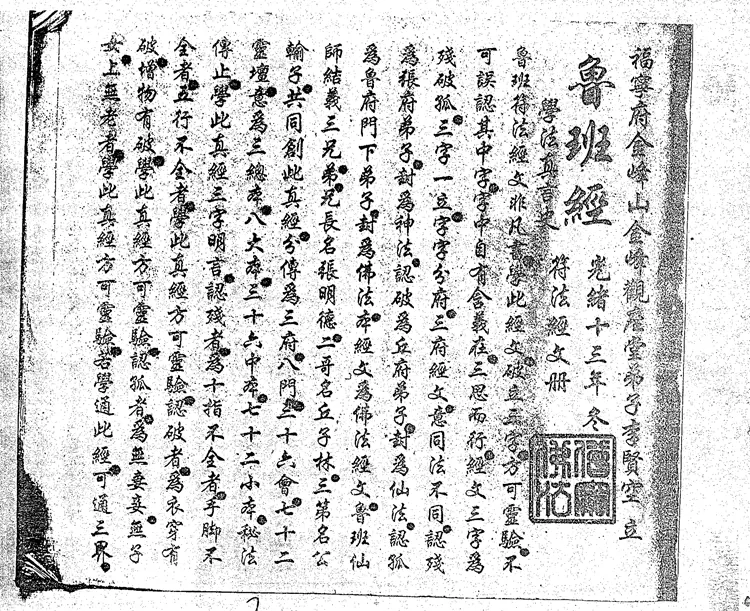 福寧府金峰山金峰觀座堂弟子李賢空立
魯班經 光緒十三年冬
學法真言文 符法經文册
魯班符法經文非凡書學此經文破立三字方可靈驗不
可誤認其中字字中自有含義在三思而行經文三字為
殘破孤三字一立字字分府三府經文意同法不同認殘
為張府弟子封為神法認破為丘府弟子封為仙法認孤
為魯府門下弟子封為佛法本經文為佛法經文魯班仙
師結義三兄弟兄長名張明德二哥名丘子林三第名公
輸子共同創此真經分傳為三府八門三十六會七十二
靈壇意為三總本八大本三十六中本七十二小本秘法
傳止學此真經三字明言認殘者為十指不全者手脚不
全者五行不全者學此真經方可靈驗認破者為衣穿有
破憎物有破學此真經方可靈驗認孤者為無妻妾無子
女上無老者學此真經方可靈驗若學通此經可通三界
7